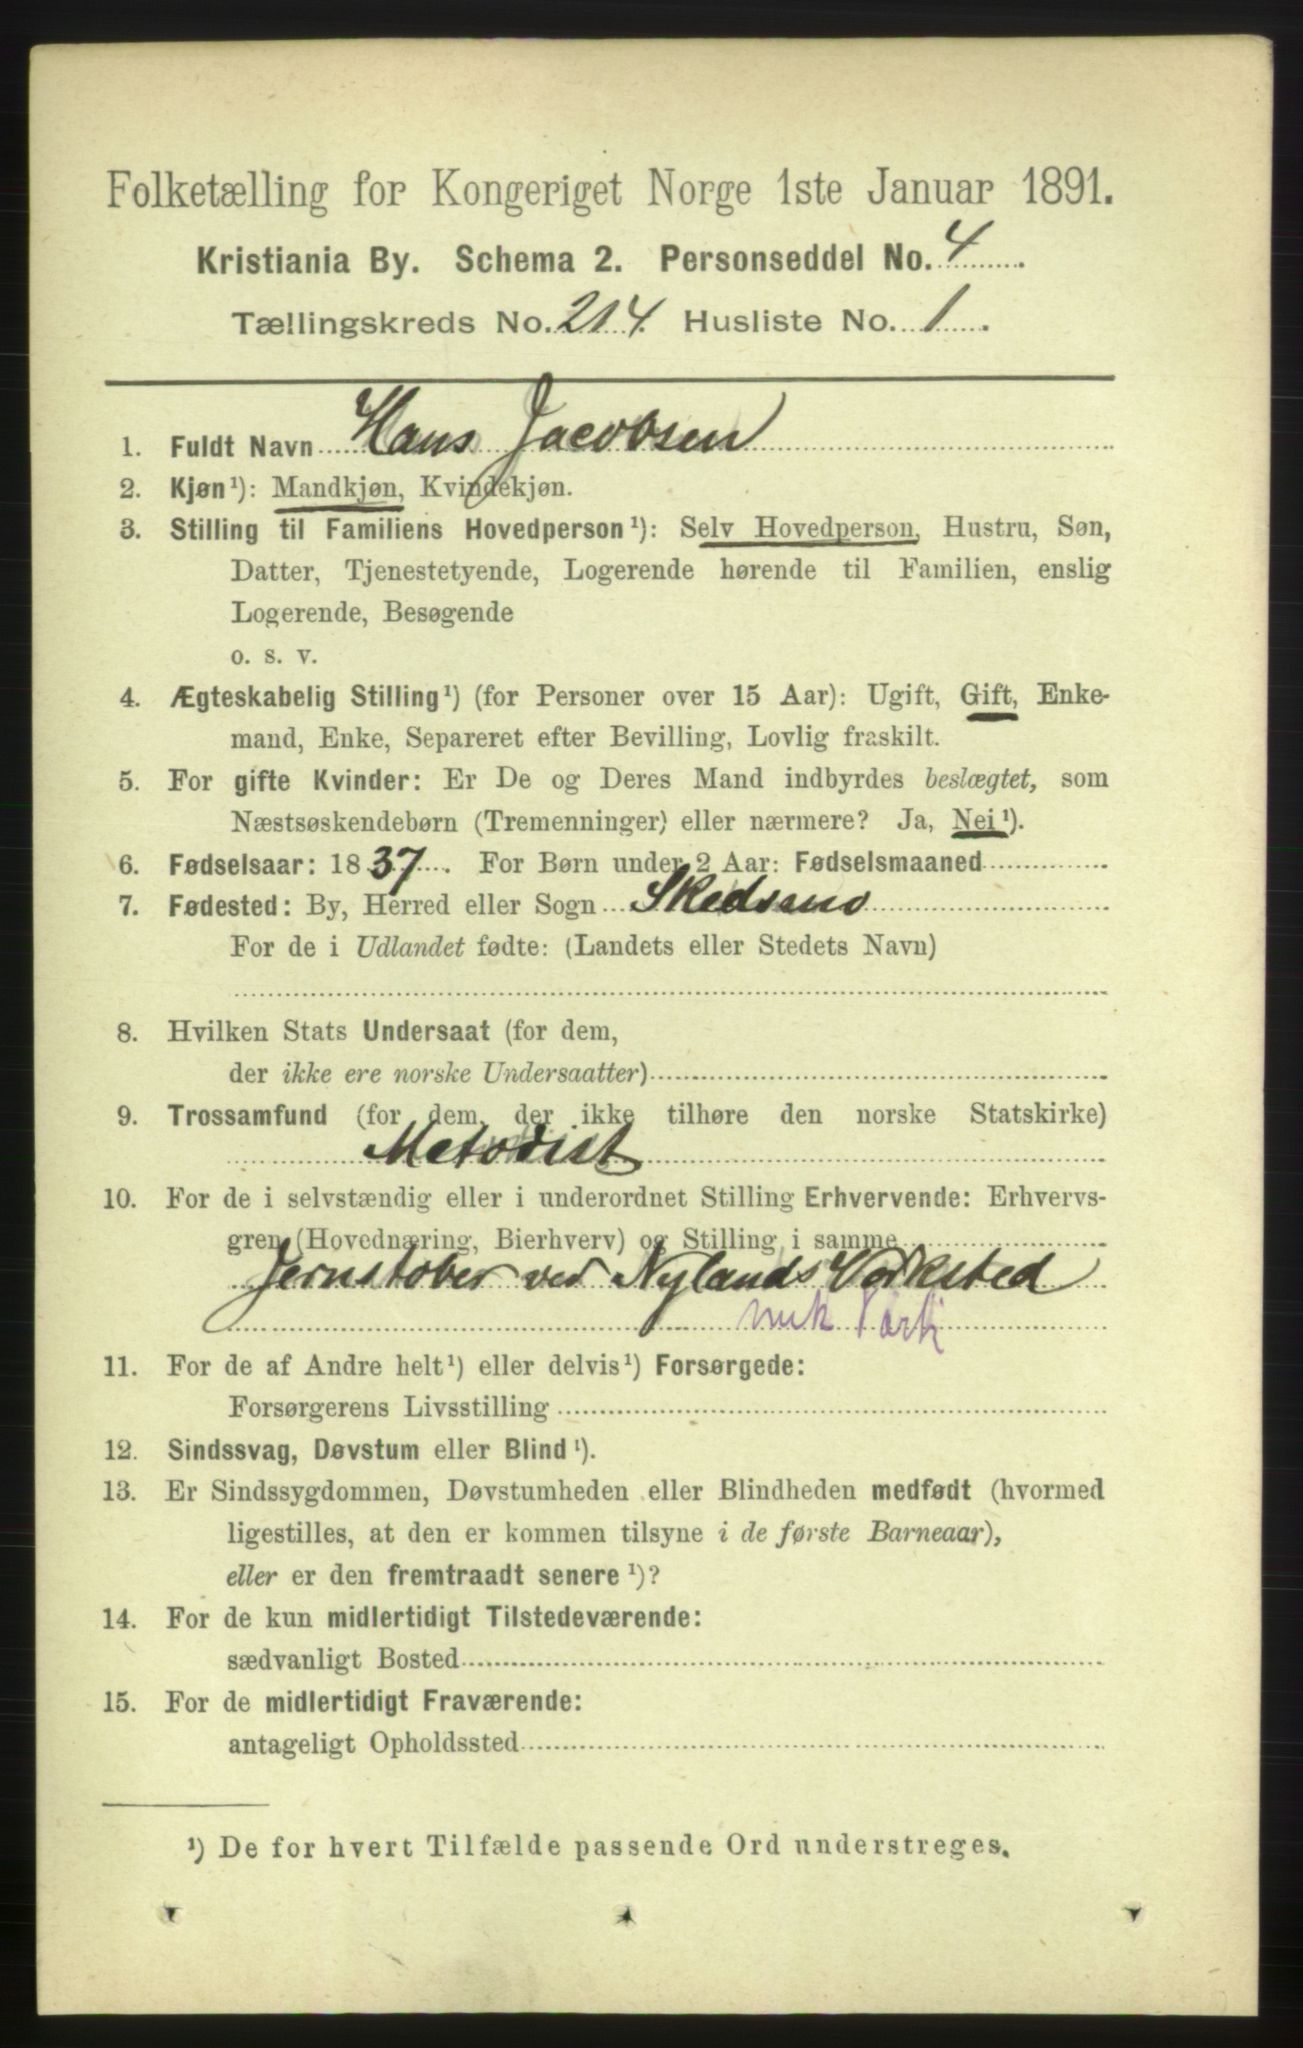 Folketælling for Kongeriget Norge 1ste Januar 1891.
Kristiania By. Schema 2. Personseddel No. 4
Tællingskreds No. 214 Husliste No. 1
1. Fuldt Navn Hans Jacobsen
2. Kjøn¹): Mandkjøn, Kvindekjøn.
3. Stilling til Familiens Hovedperson¹): Selv Hovedperson, Hustru, Søn,
Datter, Tjenestetyende, Logerende hørende til Familien, enslig
Logerende, Besøgende
o. s. v.
4. Ægteskabelig Stilling¹) (for Personer over 15 Aar): Ugift, Gift, Enke-
mand, Enke, Separeret efter Bevilling, Lovlig fraskilt.
5. For gifte Kvinder: Er De og Deres Mand indbyrdes beslægtet, som
Næstsøskendebørn (Tremenninger) eller nærmere? Ja, Nei¹).
6. Fødselsaar: 1837. For Børn under 2 Aar: Fødselsmaaned
7. Fødested: By, Herred eller Sogn Skedsmo
For de i Udlandet fødte: (Landets eller Stedets Navn)
8. Hvilken Stats Undersaat (for dem,
der ikke ere norske Undersaatter)
9. Trossamfund (for dem, der ikke tilhøre den norske Statskirke)
Metodist
10. For de i selvstændig eller i underordnet Stilling Erhvervende: Erhvervs-
gren (Hovednæring, Bierhverv) og Stilling i samme
Jernstøber ved Nylands Værksted
mek
11. For de af Andre helt¹) eller delvis¹) Forsørgede:
Forsørgerens Livsstilling
12. Sindssvag, Døvstum eller Blind¹).
13. Er Sindssygdommen, Døvstumheden eller Blindheden medfødt (hvormed
ligestilles, at den er kommen tilsyne i de første Barneaar),
eller er den fremtraadt senere¹)?
14. For de kun midlertidigt Tilstedeværende:
sædvanligt Bosted
15. For de midlertidigt Fraværende:
antageligt Opholdssted
¹) De for hvert Tilfælde passende Ord understreges.